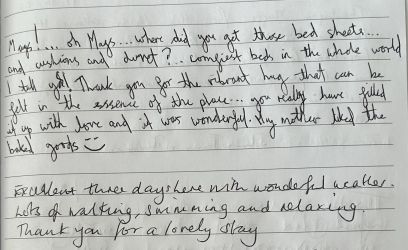 Mags!.... oh Mags... where did you get those bed sheets...
and cushions and duvet?.. comfiest beds in the whole world
I tell ya! Thank you for the vibrant hug that can be
felt in the essence of the place... you really have filled
it up with love and it was wonderful. My mother liked the
baked goods
Excellent three days here with wonderful weather.
Lots of walking, swimming and relaxing.
Thank you for a lovely stay